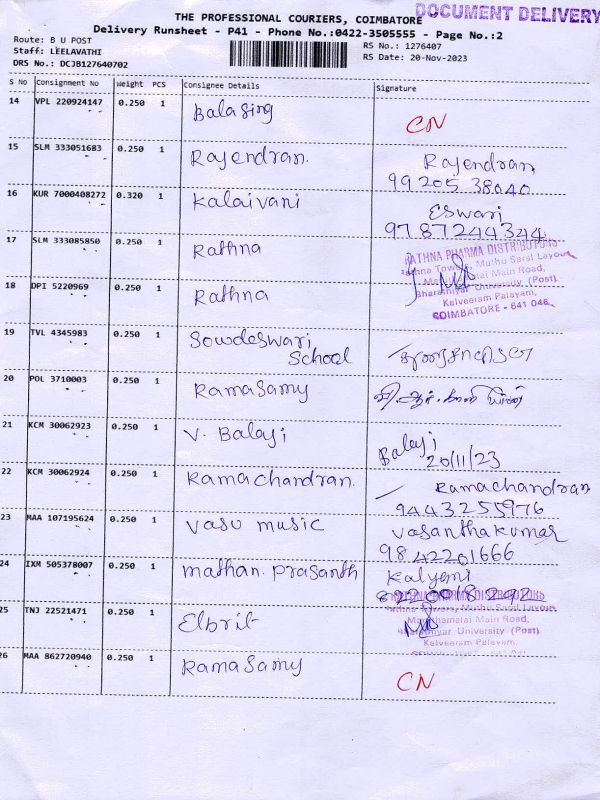 THE PROFESSIONAL COURIERS, COIMBATORE
DOCUMENT DELIVERY
Delivery Runsheet - P41 - Phone No.:0422-3505555 - Page No.:2
Route: B U POST
Staff: LEELAVATHI
DRS No.: DCJB127640702
RS No.: 1276407
RS Date: 20-Nov-2023
S No Consignment No Weight PCS Consignee Details Signature
14 VPL 220924147 0.250 1 Balasing CN
15 SLM 333051683 0.250 1 Rajendran. Rajendran
99205 38040
16 KUR 7000408272 0.320 1 Kalaivani Eswari
9787244344
17 SLM 333085850 0.250 1 Rathna
RATHNA PHARMA DISTRIBUTORS
Rathna Towers, Muthu Saral Layout
Main Road,
Bharathiyar University (Post)
Kalveeram Palayam,
COIMBATORE - 641 046.
18 DPI 5220969 0.250 1 Rathna
19 TVL 4345983 0.250 1 Sowdeswari
School
20 POL 3710003 0.250 1 Ramasamy
21 KCM 30062923 0.250 1 V. Balaji Balaji
20/11/23
22 KCM 30062924 0.250 1 Ramachandran. Ramachandran
9443255976
23 MAA 107195624 0.250 1 Vasu music Vasanthakumar
9842201666
24 IXM 505378007 0.250 1 mathan. prasanth Kalyani
25 TNJ 22521471 0.250 1 Elbrit
RATHNA PHARMA DISTRIBUTORS
Rathna Towers, Muthu Saral Layout
Maruthamalai Main Road,
Bharathiyar University (Post)
Kalveeram Palayam,
26 MAA 862720940 0.250 1 Ramasamy CN